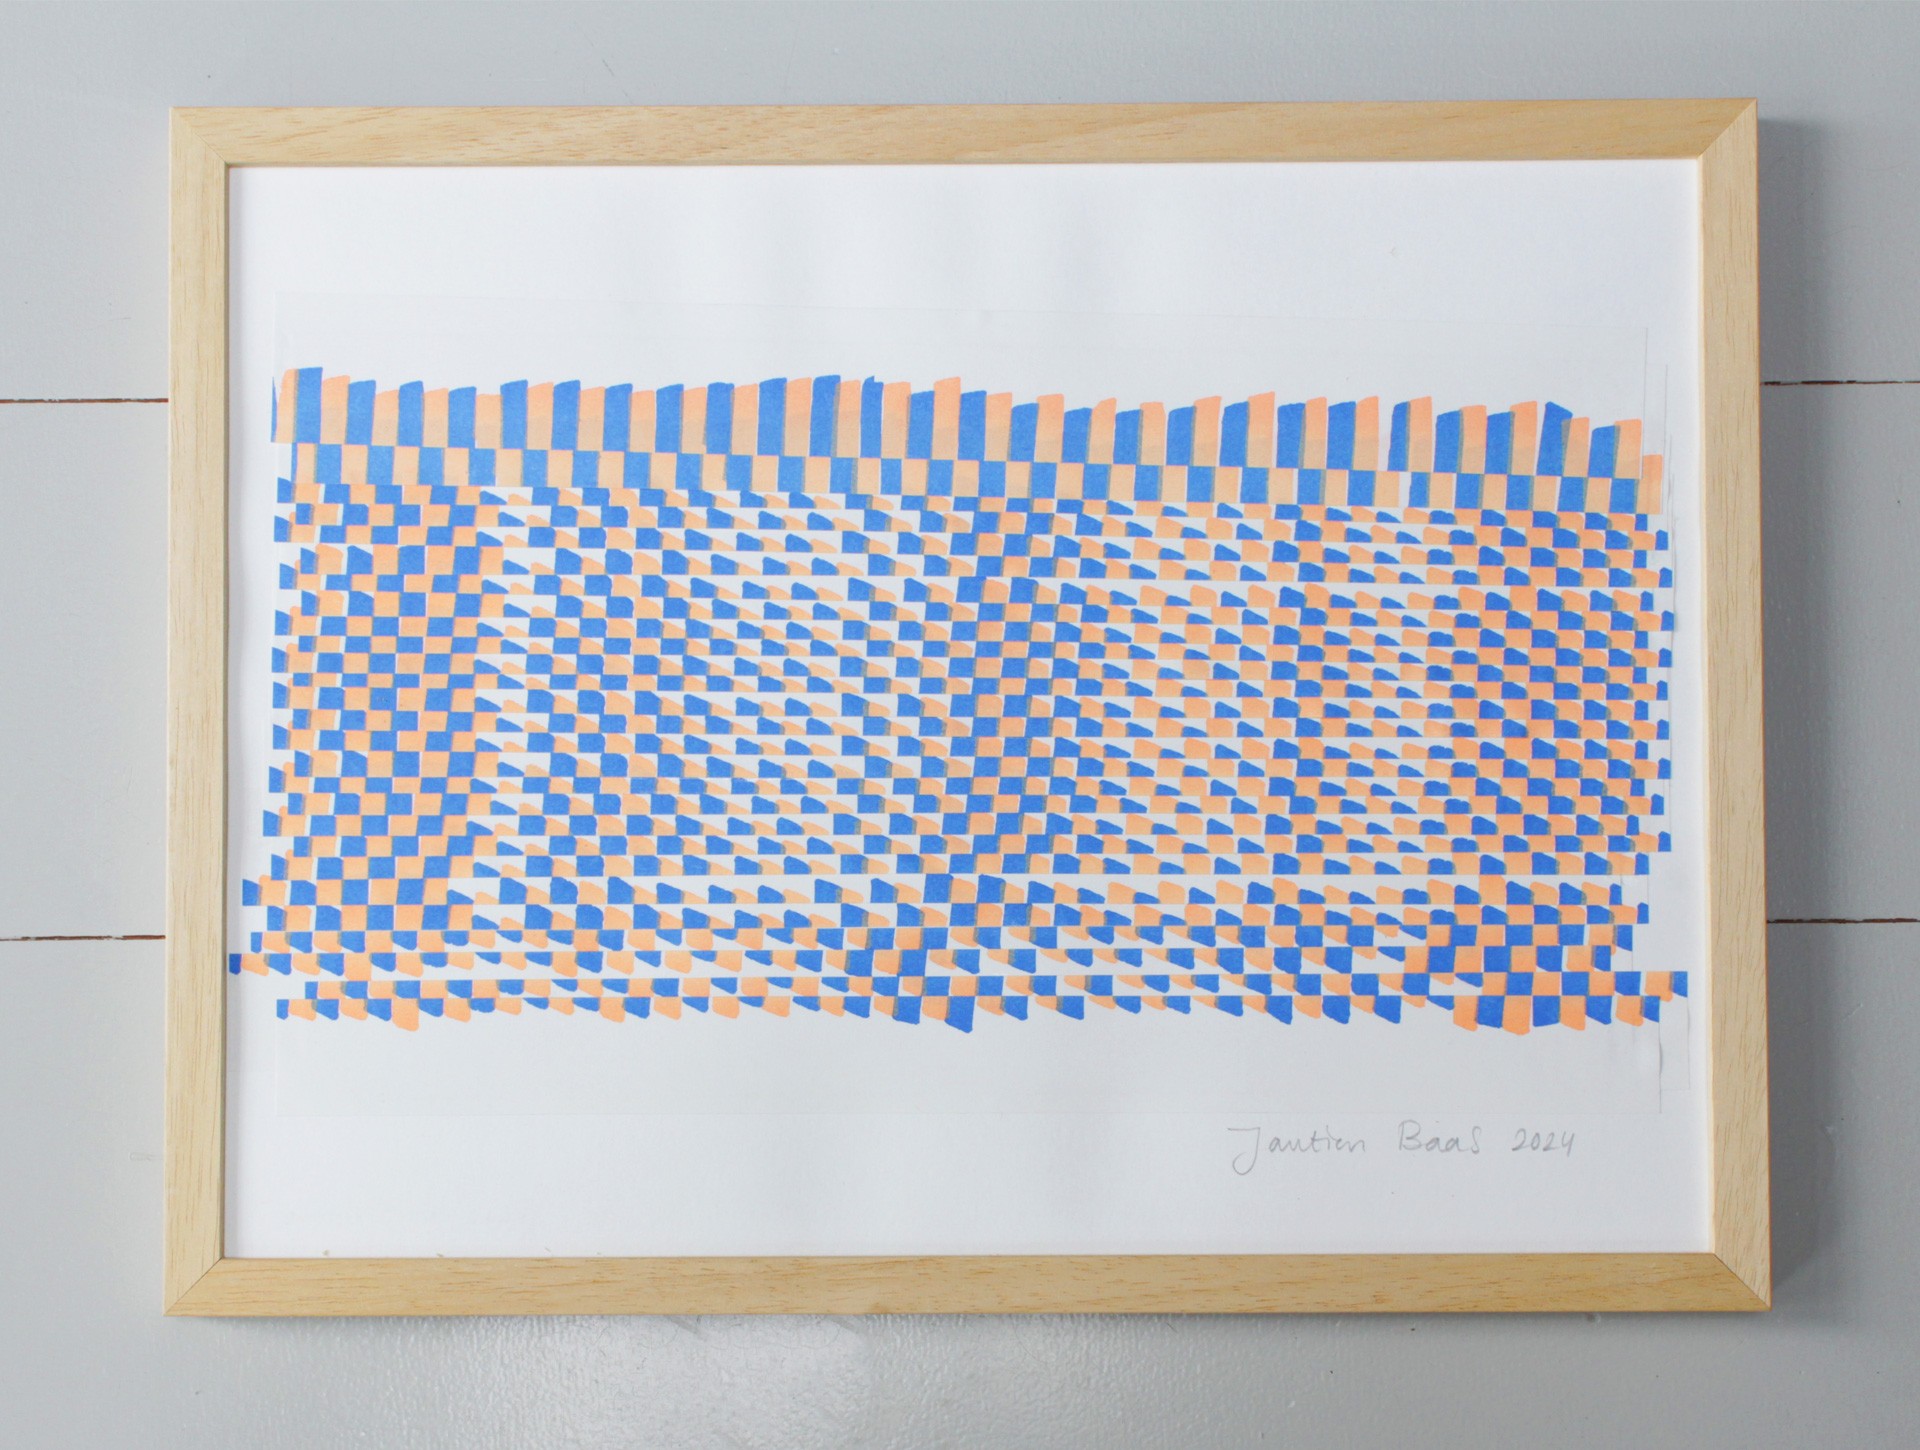 Jantien Baas 2024